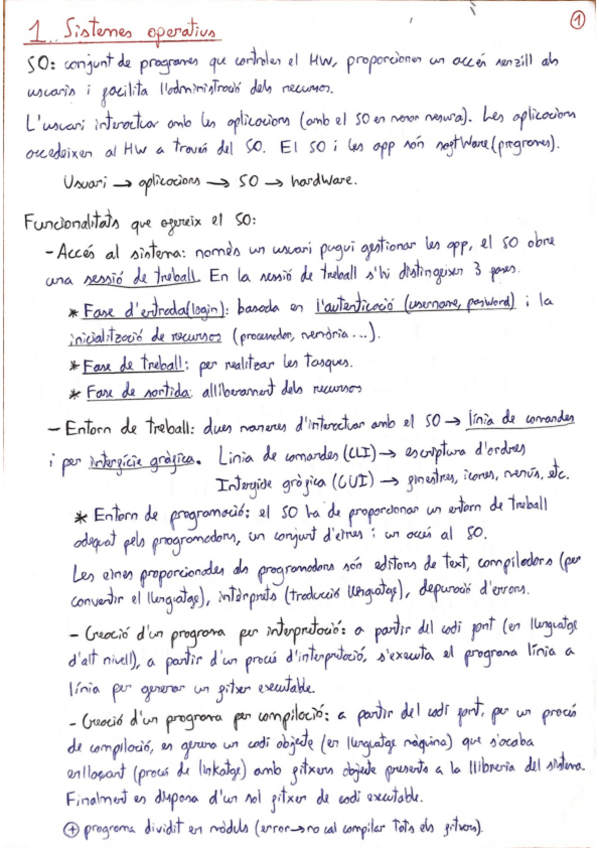 1
1. Sistemes operatius
SO: conjunt de programes que controlen el HW, proporcionen un accés senzill als
usuaris i facilita l'administració dels recursos.
L'usuari interactuar amb les aplicacions (amb el SO en menor mesura). Les aplicacions
accedeixen al HW a través del SO. El SO i les app són software (programes).
Usuari → aplicacions → SO → hardware.
Funcionalitats que ofereix el SO:
- Accés al sistema: només un usuari pugui gestionar les app, el SO obre
una sessió de treball. En la sessió de treball s'hi distingeixen 3 fases.
* Fase d'entrada(login): basada en l'autenticació (username, password) i la
inicialització de recursos (processador, memòria...).
* Fase de treball: per realitzar les tasques.
* Fase de sortida: alliberament dels recursos
- Entorn de treball: dues maneres d'interactuar amb el SO → línia de comandes
i per interfície gràfica. Linia de comandes (CLI) → escriptura d'ordres
Interfície gràfica (GUI) → finestres, icones, menús, etc.
* Entorn de programació: el SO ha de proporcionar un entorn de treball
adequat pels programadors, un conjunt d'eines i un accés al SO.
Les eines proporcionades als programadors són editors de text, compiladors (per
convertir el llenguatge), intèrprets (traducció llenguatge), depuració d'errors.
- Creació d'un programa per interpretació: a partir del codi font (en llenguatge
d'alt nivell), a partir d'un procés d'interpretació, s'executa el programa línia a
línia per generar un fitxer executable.
- Creació d'un programa per compilació: a partir del codi font, per un procés
de compilació, es genera un codi objecte (en llenguatge màquina) que s'acaba
enllaçant (procés de linkatge) amb fitxers objecte presents a la llibreria del sistema.
Finalment es disposa d'un sol fitxer de codi executable.
⊕ programa dividit en mòduls (error→no cal compilar tots els fitxers).